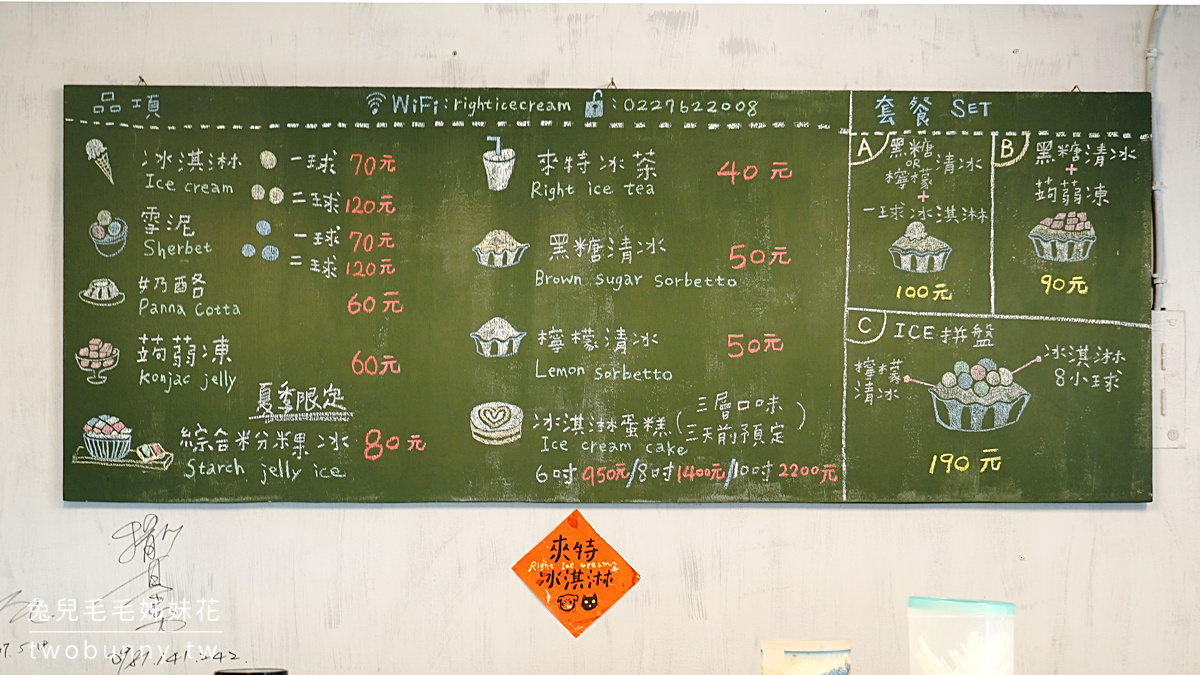 品項
WiFi:righticecream :0227622008
冰淇淋 一球 70元
Ice cream
二球 120元
雪泥 一球 70元
Sherbet 二球 120元
奶酪 60元
Panna Cotta
蒟蒻凍 60元
Konjac jelly
夏季限定
綜合粉粿冰 80元
Starch jelly ice
來特冰茶 40元
Right ice tea
黑糖清冰 50元
Brown sugar sorbetto
檸檬清冰 50元
Lemon sorbetto
冰淇淋蛋糕(三層口味 三天前預定)
Ice cream cake
6吋950元/8吋1400元/10吋2200元
套餐 SET
A
黑糖
OR
檸檬
清冰
+
一球冰淇淋
100元
B
黑糖清冰
+
蒟蒻凍
90元
C ICE拼盤
檸檬
清冰
冰淇淋
8小球
190元
來特
Right Ice cream
冰淇淋
兔兒毛毛姊妹花
twobunny.tw